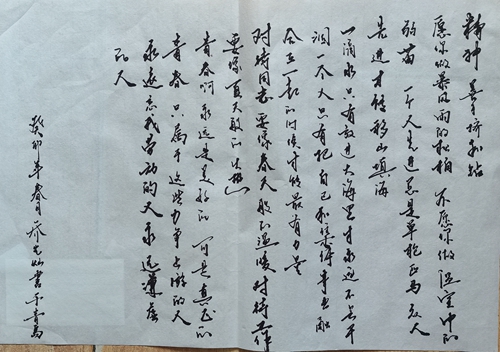 精神
愿你做暴风雨的松柏 不愿你做温室中的
弱苗 一个人先进总是单枪匹马 众人
先进才能移山填海
一滴水只有放进大海里才永远不会干
涸 一个人只有把自己和集体事业融
合在一起的时候才能最有力量
对待同志要像春天般的温暖 对待工作
要像夏天般的火热
青春啊 永远是美好的 可是真正的
青春 只属于这些力争上游的人
永远忘我劳动的人 永远谦虚
的人
癸卯年春月 书于青岛